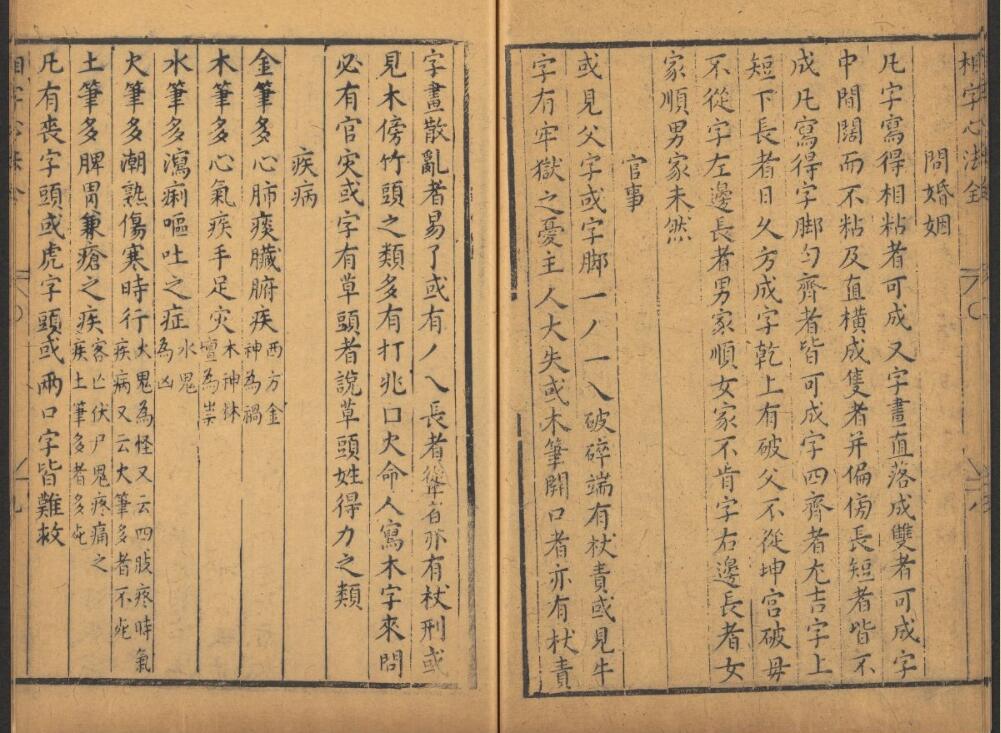 相字心法全
問婚姻
凡字寫得相粘者可成又字畫直落成雙者可成字
中間闊而不粘及直橫成隻者并偏傍長短者皆不
成凡寫得字脚勻齊者皆可成字四齊者尤吉字上
短下長者日久方成字乾上有破父不從坤宮破毋
不從字左邊長者男家順女家不肯字右邊長者女
家順男家未然
官事
或見父字或字脚一丿一乀破碎端有杖責或見牛
字有牢獄之憂主人大失或木筆開口者亦有杖責
字畫散亂者易了或有丿乀長者從宰者亦有杖刑或
見木傍竹頭之類多有打兆口火命人寫木字來問
必有官灾或字有草頭者說草頭姓得力之類
疾病
金筆多心肺痰臟腑疾西方金
神為禍
木筆多心氣疾手足灾木神林
壇為祟
水筆多瀉痢嘔吐之症水鬼
為凶
火筆多潮熟傷寒時行火鬼為怪又云四肢疼時氣
疾病又云火筆多者不死
土筆多脾胃兼瘡之疾客亡伏尸鬼疼痛之
疾土筆多者多死
凡有喪字頭或虎字頭或兩口字皆難救
九